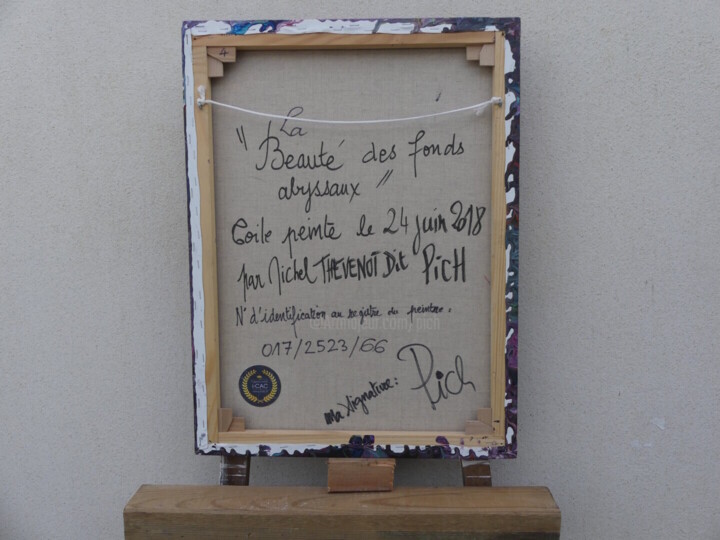 4
" La
Beauté des fonds
abyssaux "
Toile peinte le 24 juin 2018
par Michel THEVENOT Dit PICH
N° d'identification au registre des peintres :
017/2523/66
Ma signature : Pich
CAC